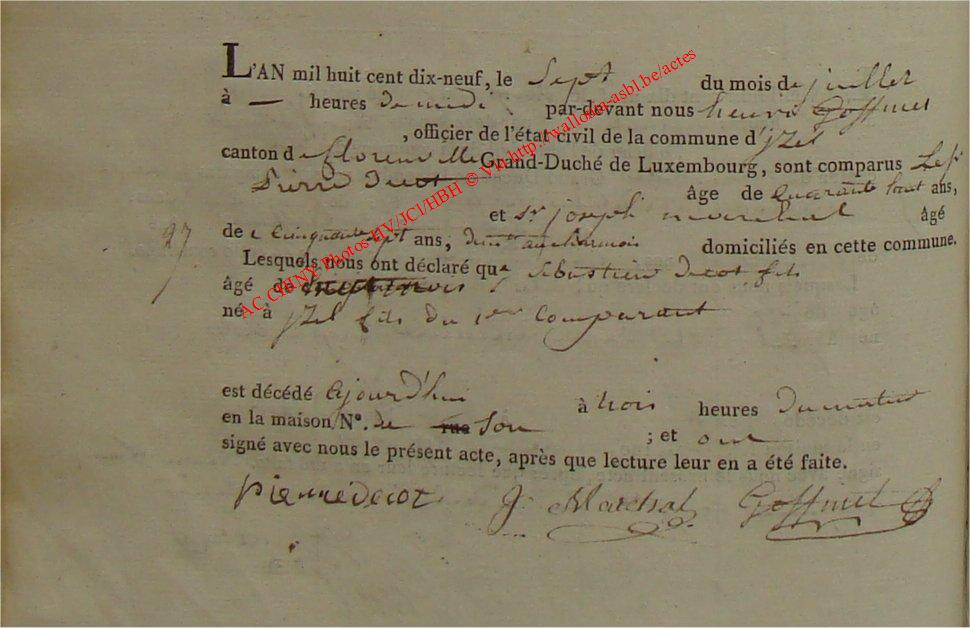 L'AN mil huit cent dix-neuf, le Sept du mois de juillet
à — heures de midi par-devant nous henri Goffinet
, officier de l'état civil de la commune d'yzel
canton de florenville Grand-Duché de Luxembourg, sont comparus Le Sr
Pierre Decot âge de quarante huit ans,
et Sr joseph marchal âgé
de Cinquante sept ans, domiciliés en cette commune.
27
Lesquels nous ont déclaré que Sebastien Decot fils
âgé de
né à yzel fils du 1er Comparant
est décédé ajourd'hui à trois heures du matin
en la maison N°. de rue Son ; et ont
signé avec nous le présent acte, après que lecture leur en a été faite.
pierre decot J. Marchal Goffinet
AC CHINY Photos HV/JCl/HBH © VW http://wallonia-asbl.be/actes